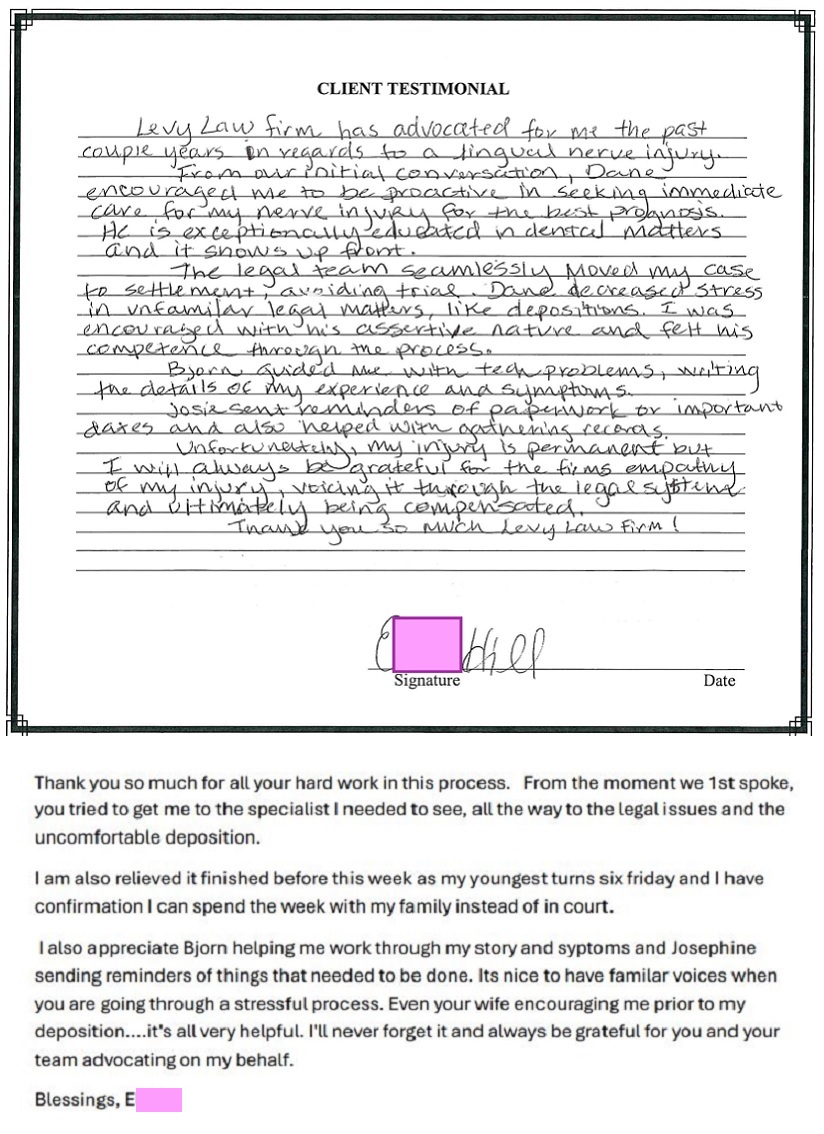 CLIENT TESTIMONIAL
Levy Law firm has advocated for me the past
couple years in regards to a lingual nerve injury.
From our initial conversation, Dane
encouraged me to be proactive in seeking immediate
care for my nerve injury for the best prognosis.
He is exceptionally educated in dental matters
and it shows up front.
The legal team seamlessly moved my case
to settlement, avoiding trial. Dane decreased stress
in unfamilar legal matters, like depositions. I was
encouraged with his assertive nature and felt his
competence through the process.
Bjorn guided me with tech problems, writing
the details of my experience and symptoms.
Josie sent reminders of paperwork or important
dates and also helped with gathering records.
Unfortunately, my injury is permanent but
I will always be grateful for the firms empathy
of my injury, voicing it through the legal system
and ultimately being compensated.
Thank you so much Levy Law Firm!
E Hill
Signature Date
Thank you so much for all your hard work in this process. From the moment we 1st spoke,
you tried to get me to the specialist I needed to see, all the way to the legal issues and the
uncomfortable deposition.
I am also relieved it finished before this week as my youngest turns six friday and I have
confirmation I can spend the week with my family instead of in court.
I also appreciate Bjorn helping me work through my story and syptoms and Josephine
sending reminders of things that needed to be done. Its nice to have familar voices when
you are going through a stressful process. Even your wife encouraging me prior to my
deposition....it's all very helpful. I'll never forget it and always be grateful for you and your
team advocating on my behalf.
Blessings, E